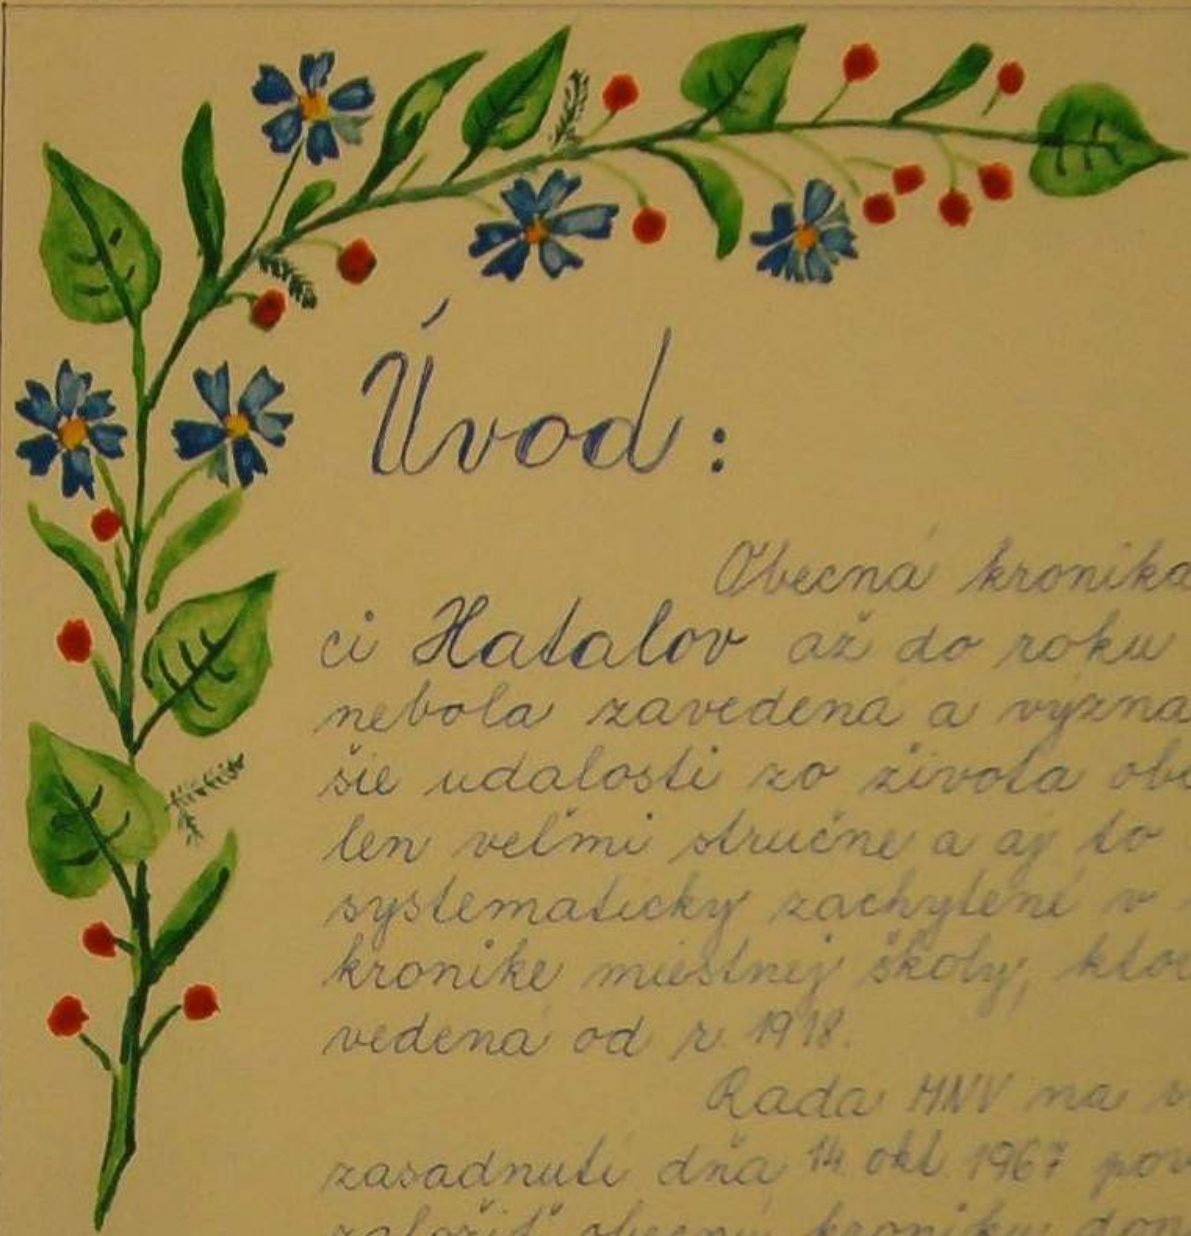 Úvod:
Obecná kronika
ci Hatalov až do roku
nebola zavedená a význa
šie udalosti zo života obe
len veľmi stručne a aj to
systematicky zachytené v
kronike miestnej školy, ktor
vedená od r. 1918.
Rada MNV na
zasadnutí dňa 14. okt. 1967 pov
založiť obecnú kroniku don